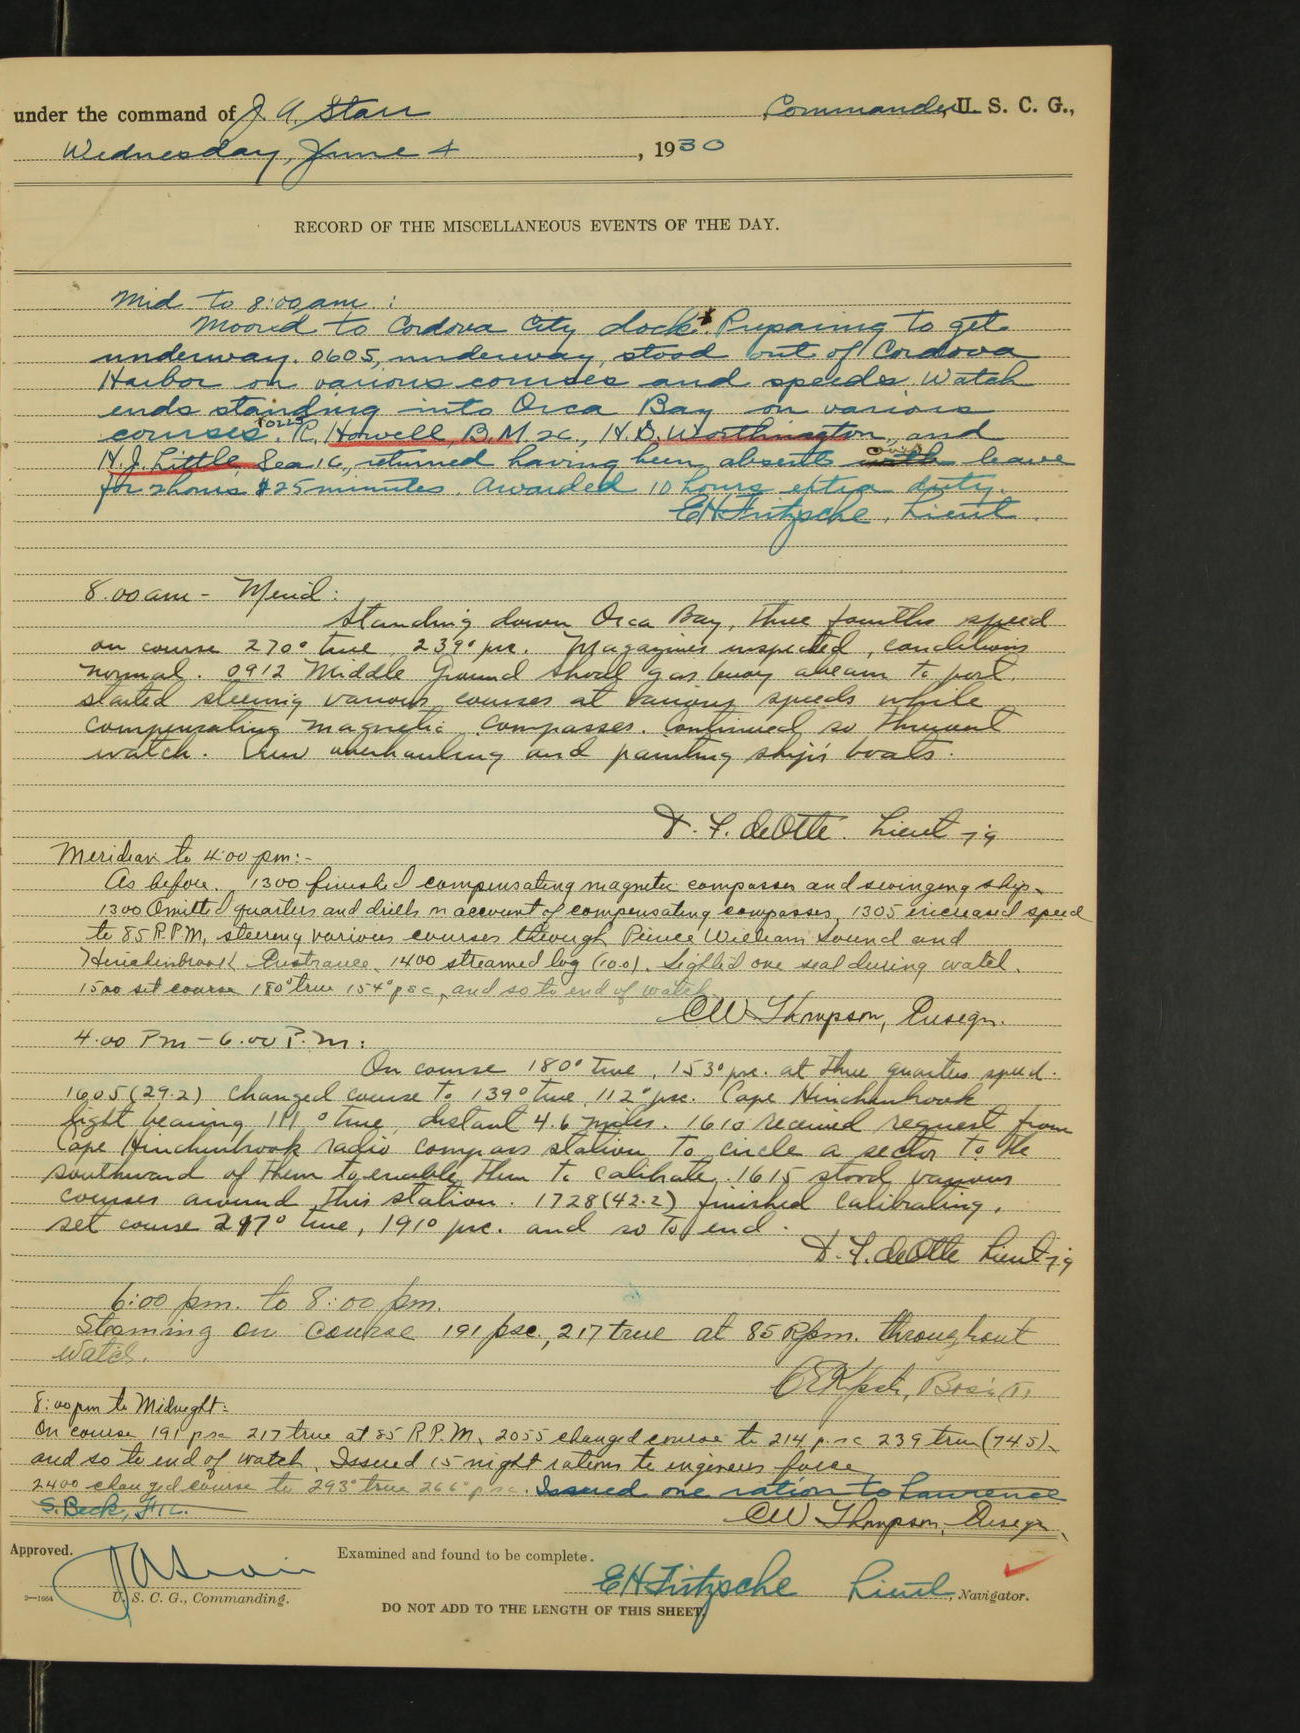 under the command of J. A. Starr Commander, U. S. C. G.,
Wednesday, June 4, 1930
RECORD OF THE MISCELLANEOUS EVENTS OF THE DAY.
Mid to 8:00 am :
Moored to Cordova City dock. Preparing to get
underway. 0605, underway, stood out of Cordova
Harbor on various courses and speeds. Watch
ends standing into Orca Bay on various
courses. R. Howell, B.M. 2c., H.D. Worthington, and
H.J. Little, Sea 1c, returned having been absent over leave
for 2 hours & 25 minutes. Awarded 10 hours extra duty.
E H Fritzsche, Lieut.
8.00 am - Merid:
Standing down Orca Bay, three fourths speed
on course 270° true 239° psc. Magazines inspected, conditions
normal. 0912 Middle Ground Shoal gas buoy abeam to port.
started steering various courses at various speeds while
compensating magnetic compasses. Continued so thruout
watch. Crew overhauling and painting ship's boats.
D. F. deOtte. Lieut jg
Meridian to 4:00 pm:-
As before. 1300 finished compensating magnetic compasses and swinging ship.
1300 Omitted quarters and drills on account of compensating compasses. 1305 increased speed
to 85 R.P.M, steering various courses through Prince William Sound and
Hinchinbrook Entrance. 1400 streamed log (10.0). Sighted one seal during watch.
1500 set course 180° true 154° psc, and so to end of watch.
CW Thompson, Ensign.
4.00 Pm - 6.00 P.m:
On course 180° true, 153° psc. at three quarters speed.
1605 (29.2) changed course to 139° true 112° psc. Cape Hinchinbrook
light bearing 111° true, distant 4.6 miles. 1610 received request from
Cape Hinchinbrook radio compass station to circle a sector to the
southward of them to enable them to calibrate. 1615 stood various
courses around this station. 1728 (42.2) finished calibrating,
set course 217° true, 191° psc. and so to end.
D. F. deOtte Lieut jg
6:00 pm. to 8:00 pm.
Steaming on course 191 psc, 217 true at 85 Rpm. throughout
watch.
8:00 pm to Midnight:
On course 191 psc 217 true at 85 R.P.M. 2055 changed course to 214 psc 239 true (74.5),
and so to end of watch. Issued 15 night rations to engineers force
2400 changed course to 293° true 266° psc. Issued one ration to Lawrence
S. Beck, F1c.
CW Thompson, Ensign.
Approved. Examined and found to be complete.
E H Fritzsche Lieut, Navigator.
2—1664 U. S. C. G., Commanding.
DO NOT ADD TO THE LENGTH OF THIS SHEET.